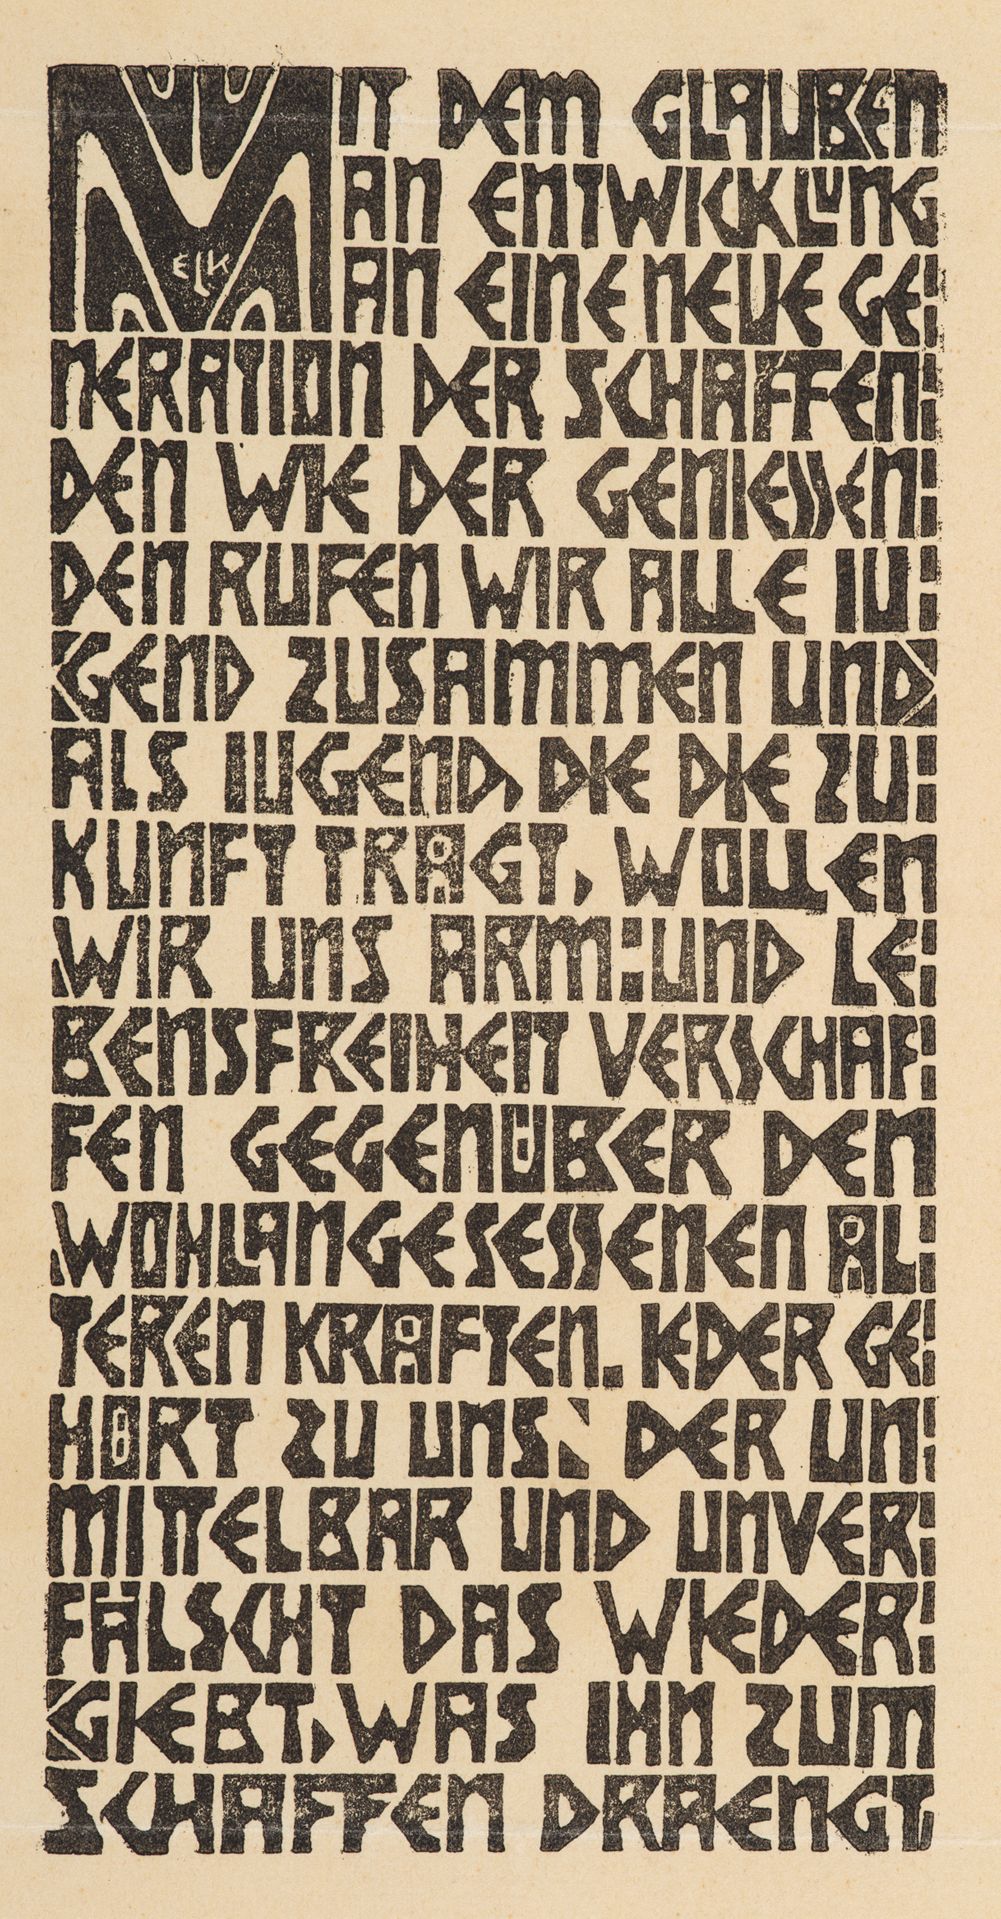 MIT DEM GLAUBEN
AN ENTWICKLUNG
ELK
AN EINE NEUE GE:
NERATION DER SCHAFFEN:
DEN WIE DER GENIESSEN:
DEN RUFEN WIR ALLE IU:
GEND ZUSAMMEN UND
ALS IUGEND, DIE DIE ZU:
KUNFT TRÄGT, WOLLEN
WIR UNS ARM:UND LE:
BENSFREIHEIT VERSCHAF:
FEN GEGENÜBER DEN
WOHLANGESESSENEN ÄL:
TEREN KRÄFTEN. IEDER GE:
HÖRT ZU UNS, DER UN:
MITTELBAR UND UNVER:
FÄLSCHT DAS WIEDER:
GIEBT, WAS IHN ZUM
SCHAFFEN DRAENGT.